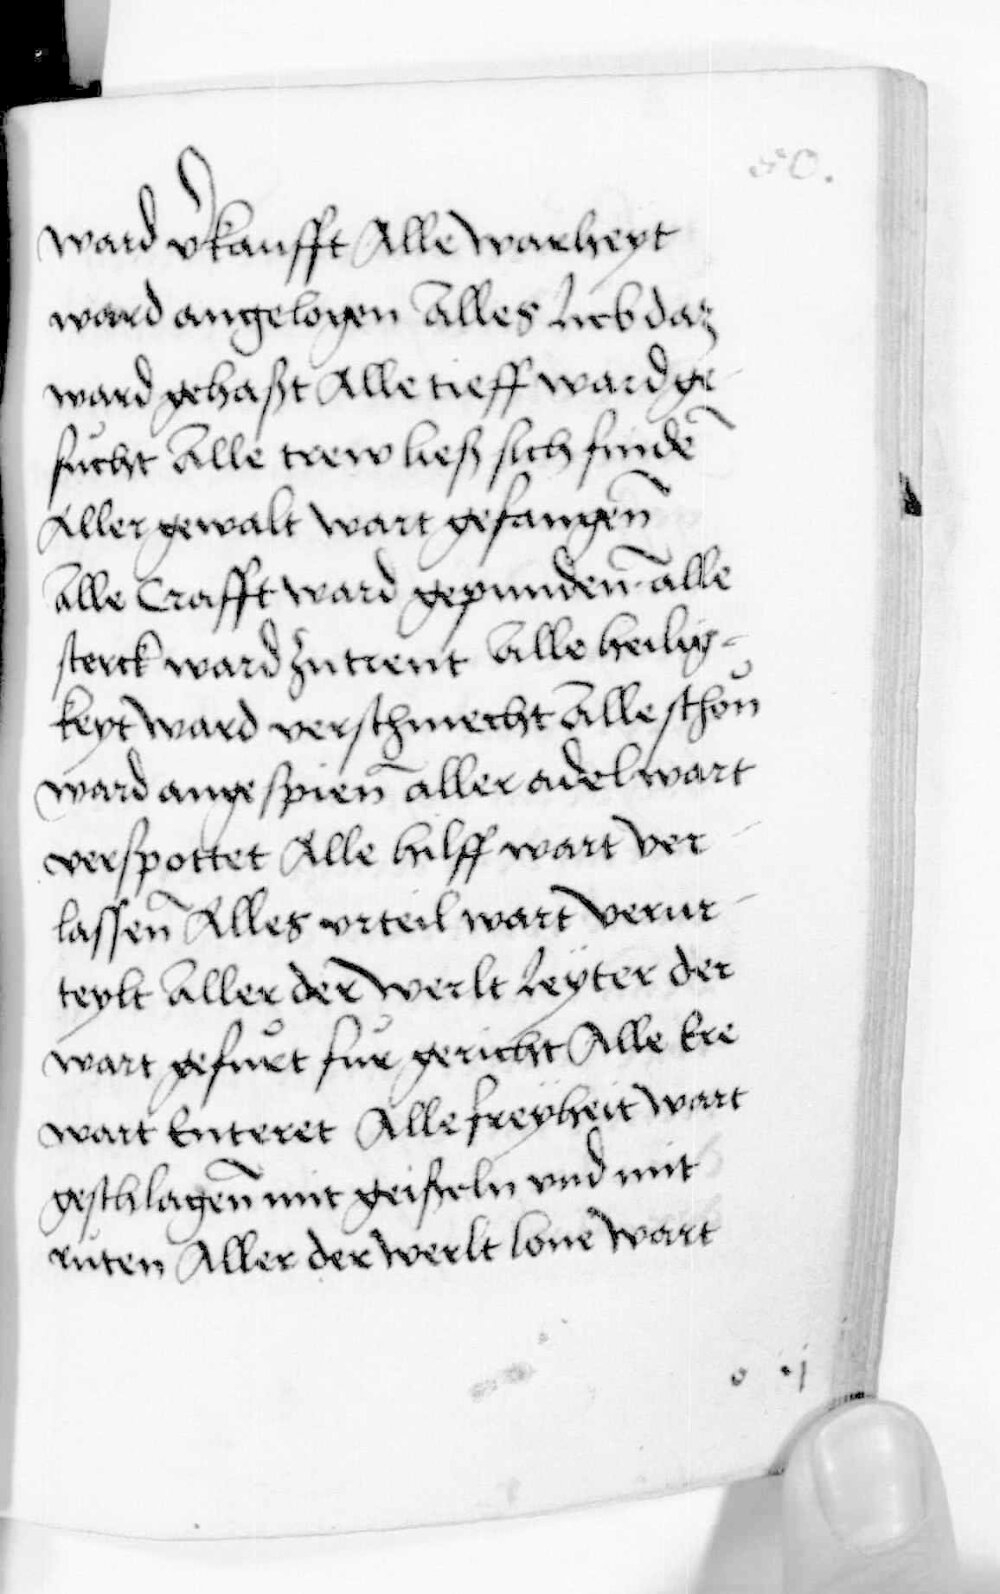 80.
ward v̉kaufft Alle warheyt
ward angelogen Alles Lieb daz
ward gehaßt Alle tieff ward ge-
sucht Alle trew ließ sich findē
Aller gewalt wart gefangen̄
Alle Crafft ward gepunden̄ alle
sterck ward zutrent Alle heilig-
keyt ward verschmecht Alle schon̊
ward angespien̄ aller adel wart
verspottet Alle hilff wart ver-
lassen̄ Alles vrteil wart verur-
teylt Aller der werlt Leÿter der
wart gefůrt fůr gericht Alle Ere
wart Enteret Alle freÿheit wart
geschlagen̄ mit geißeln vnd mit
ruten Aller der werlt lone wart